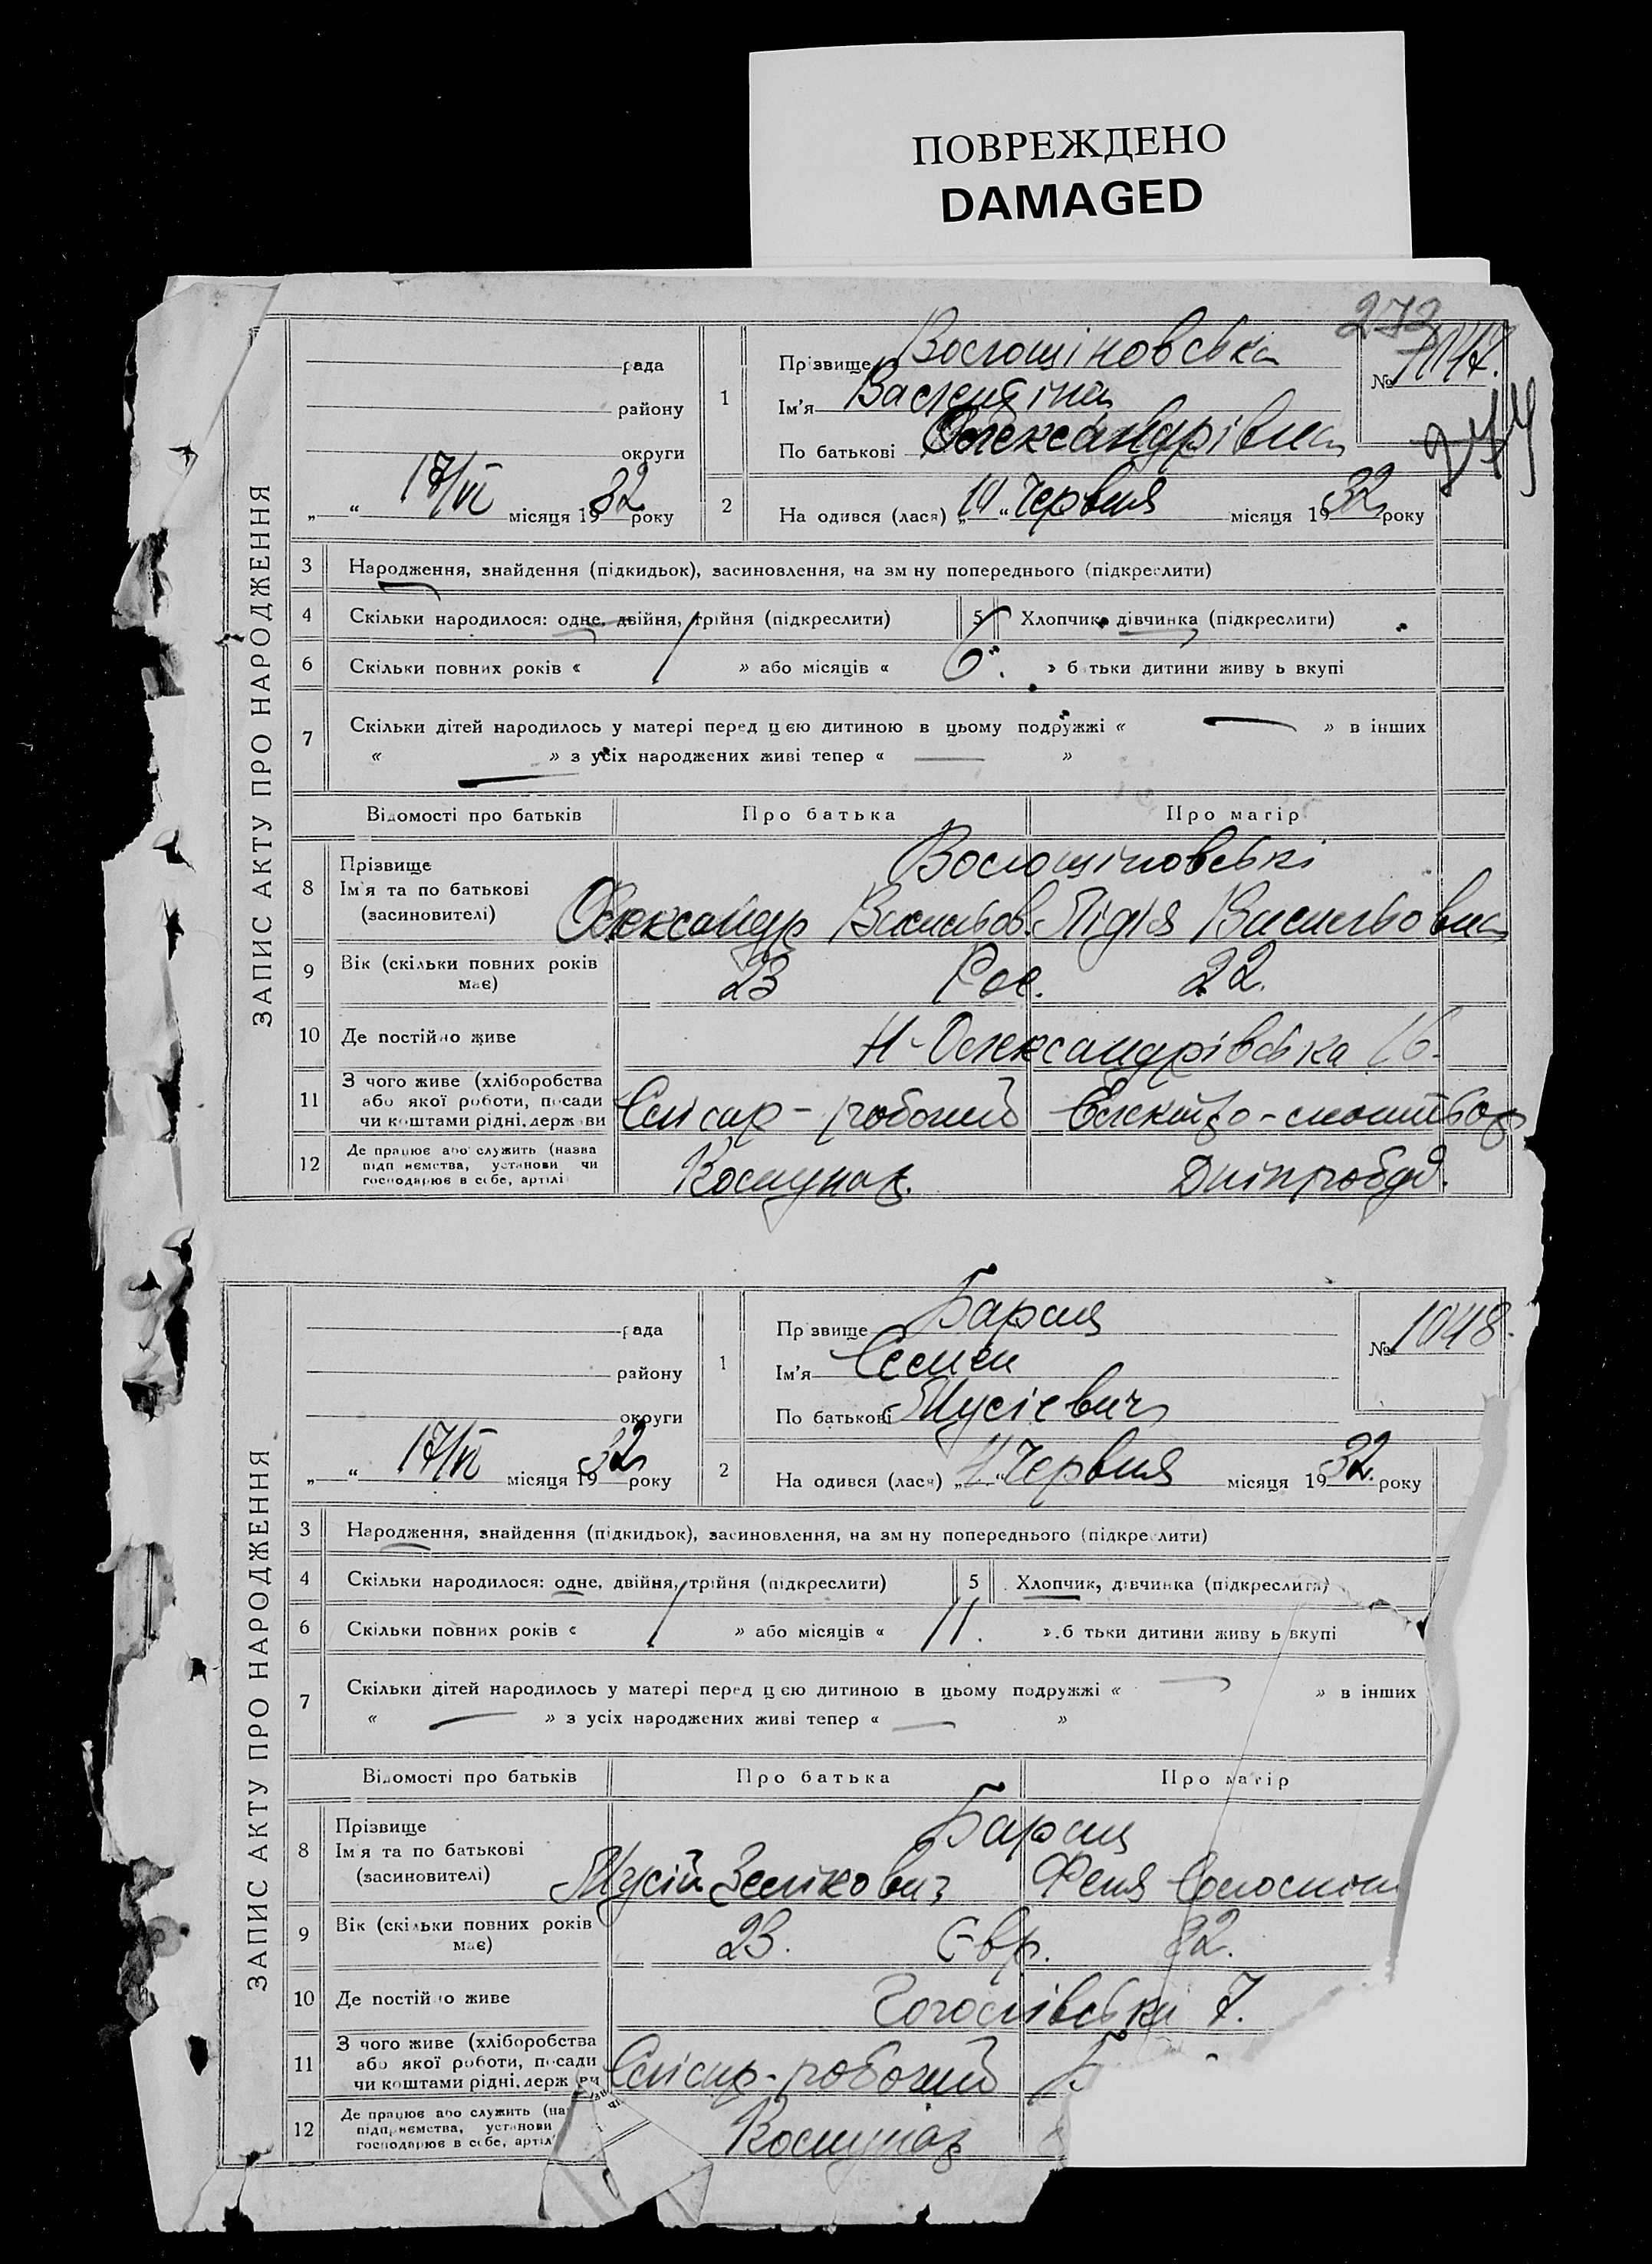 ПОВРЕЖДЕНО
DAMAGED
273
ЗАПИС АКТУ ПРО НАРОДЖЕННЯ
рада
району
округи
„ “ 17/VI місяця 1932 року
1
Прізвище Волощіновська
Ім'я Валентіна
По батькові Олександрівна
№ 1147.
2
На одився (лася) „ “ Червня місяця 1932 року
3 Народження, знайдення (підкидьок), засиновлення, на зм ну попереднього (підкреслити)
4 Скільки народилося: одне, двійня, трійня (підкреслити) 5 Хлопчик, дівчинка (підкреслити)
6 Скільки повних років « / » або місяців « 6. » б тьки дитини живу ь вкупі
7 Скільки дітей народилось у матері перед цею дитиною в цьому подружжі « — » в інших
« — » з усіх народжених живі тепер « — »
Відомості про батьків Про батька Про матір
8 Прізвище
Ім'я та по батькові
(засиновителі)
Волощіновські
Олександр Васильов. Лідія Васильовна
9 Вік (скільки повних років має) 23 Рос. 22.
10 Де постійно живе Н-Олександрівська 16.
11 З чого живе (хліборобства
або якої роботи, посади
чи коштами рідні, держ ви
Слісар-робочий Електро-монтьор
12 Де працює або служить (назва
підп иємства, установи чи
господарює в себе, артілі
Комунар. Дніпробуд.
ЗАПИС АКТУ ПРО НАРОДЖЕННЯ
рада
району
округи
„ “ 17/VI місяця 1932 року
1
Пр звище
Ім'я Семен
По батькові Мусієвич
№ 1048.
2
На одився (лася) „11“ Червня місяця 1932 року
3 Народження, знайдення (підкидьок), засиновлення, на зм ну попереднього (підкре лити)
4 Скільки народилося: одне, двійня, трійня (підкреслити) 5 Хлопчик, дівчинка (підкреслити)
6 Скільки повних років « / » або місяців « 11. » б тьки дитини живу ь вкупі
7 Скільки дітей народилось у матері перед цею дитиною в цьому подружжі « — » в інших
« — » з усіх народжених живі тепер « — »
Відомості про батьків Про батька Про матір
8 Прізвище
Ім'я та по батькові
(засиновителі)
Мусій Зелікович Феня
9 Вік (скільки повних років має) 23. Євр. 22.
10 Де постій о живе Гоголівська 7.
11 З чого живе (хліборобства
або якої роботи, посади
чи коштами рідні, держ ви
Слісар-робочий
12 Де працює або служить (на
підп иємства, установи
господарює в себе, артіл
Комунар